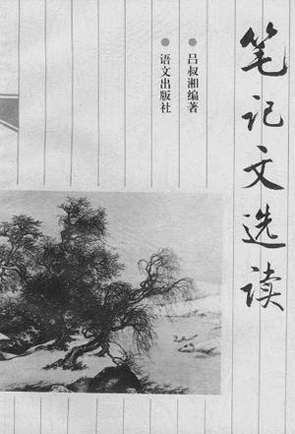 笔记文选读
吕叔湘编著
语文出版社